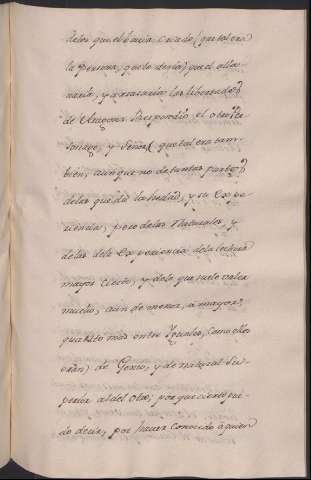 delos que el havia criado (que tal era
la persona, que lo decia) que el alla-
naria, y arrasaria las libertades
de Aragon: Respondió el otro Per-
sonage, y Señor (que tal era tam-
bien, aunque no de tantas partes
delas que dá la hedad, y su Expe-
riencia; pero delas Naturales, y
delas dela Experiencia dela lectura
mayor cierto, y delo que suele valer
mucho, aun de menor, a mayor,
quanto mas entre Iguales, como ellos
eran) de Genio, y de natural Su-
perior al del otro; por que cierto pu-
do decir, por haver conocido á quien